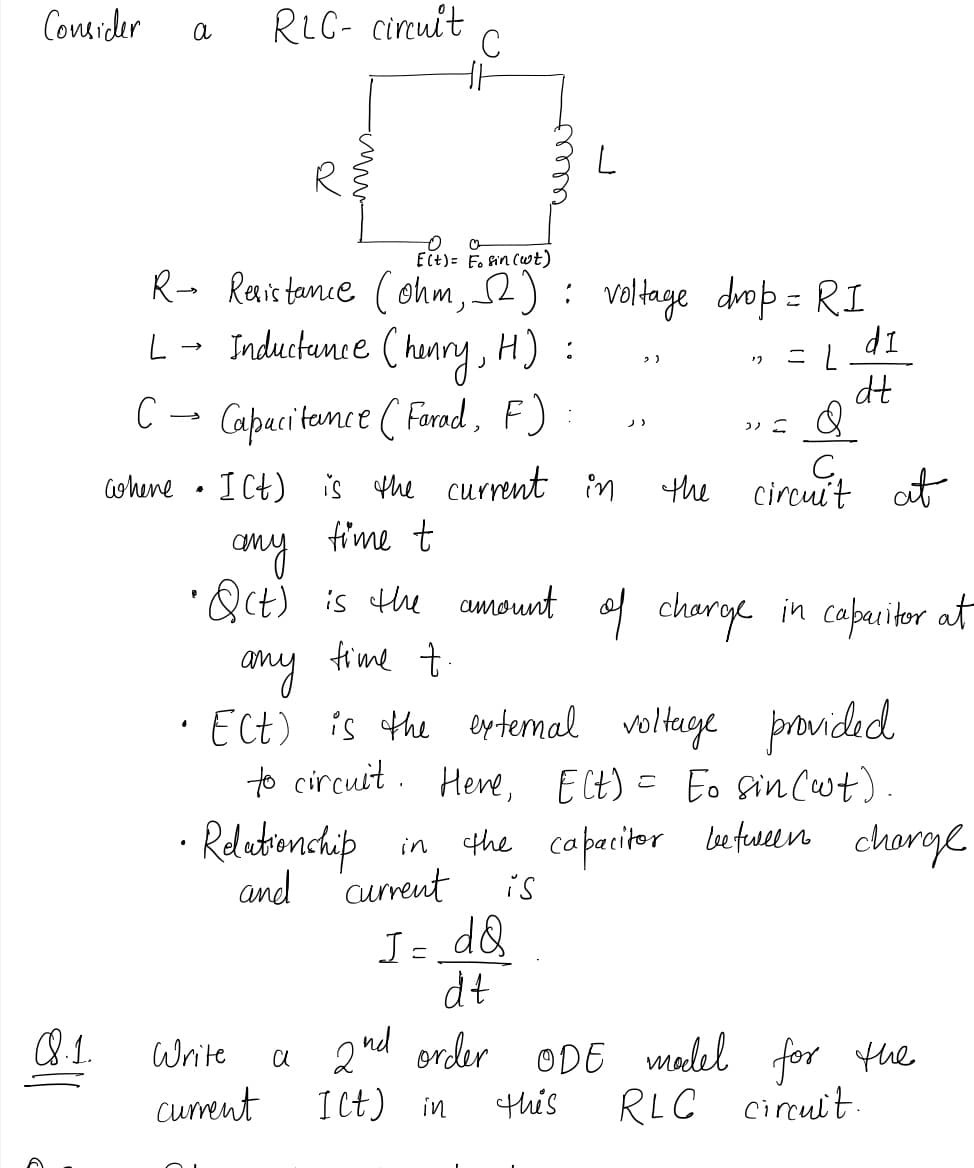 Consider a RLC- circuit
C
R
L
E(t)= E₀ sin(ωt)
R → Resistance (ohm, Ω) : voltage drop = RI
L → Inductance (henry, H) : ,, ,, = L dI/dt
C → Capacitance (Farad, F) : ,, ,, = Q/C
where • I(t) is the current in the circuit at
any time t
• Q(t) is the amount of charge in capacitor at
any time t.
• E(t) is the external voltage provided
to circuit. Here, E(t) = E₀ sin(ωt).
• Relationship in the capacitor between charge
and current is
I = dQ/dt .
Q.1. Write a 2nd order ODE model for the
current I(t) in this RLC circuit.